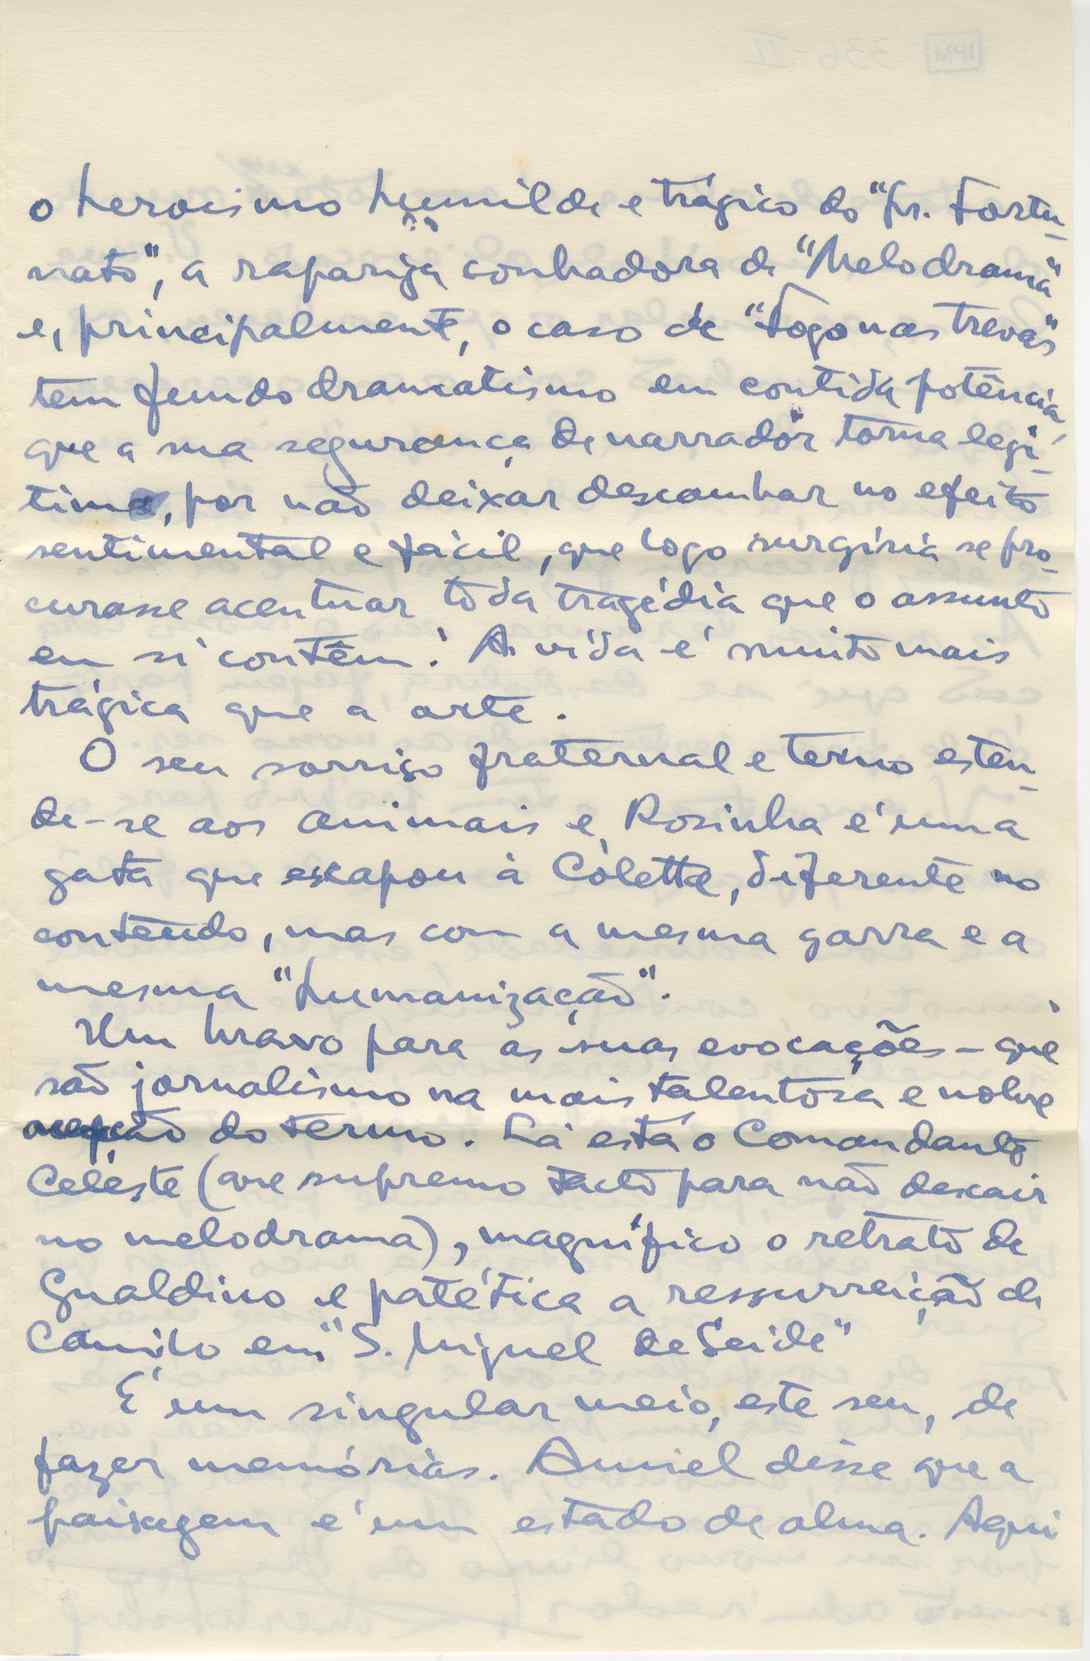 o heroismo humilde e trágico do "Sr. Fortu-
nato", a rapariga sonhadora de "Melodrama"
e, principalmente, o caso de "Fogo nas trevas"
tem fundo dramatismo em contida potência,
que a sua segurança de narrador torna legí-
tima, por não deixar descambar no efeito
sentimental e fácil, que logo surgiria se pro-
curasse acentuar toda tragédia que o assunto
em si contêm! A vida é muito mais
trágica que a arte.
O seu sorriso fraternal e terno esten-
de-se aos animais e Rosinha é uma
gata que escapou à Colette, diferente no
conteúdo, mas com a mesma garra e a
mesma "humanização".
Um bravo para as suas evocações - que
são jornalismo na mais talentosa e nobre
acepção do termo. Lá está o Comandante
Celeste (que supremo tacto para não descair
no melodrama), magnífico o retrato de
Gualdino e patética a ressurreição de
Camilo em "S. Miguel de Seide"
É um singular meio, este seu, de
fazer memórias. Amiel disse que a
paisagem é um estado de alma. Aqui